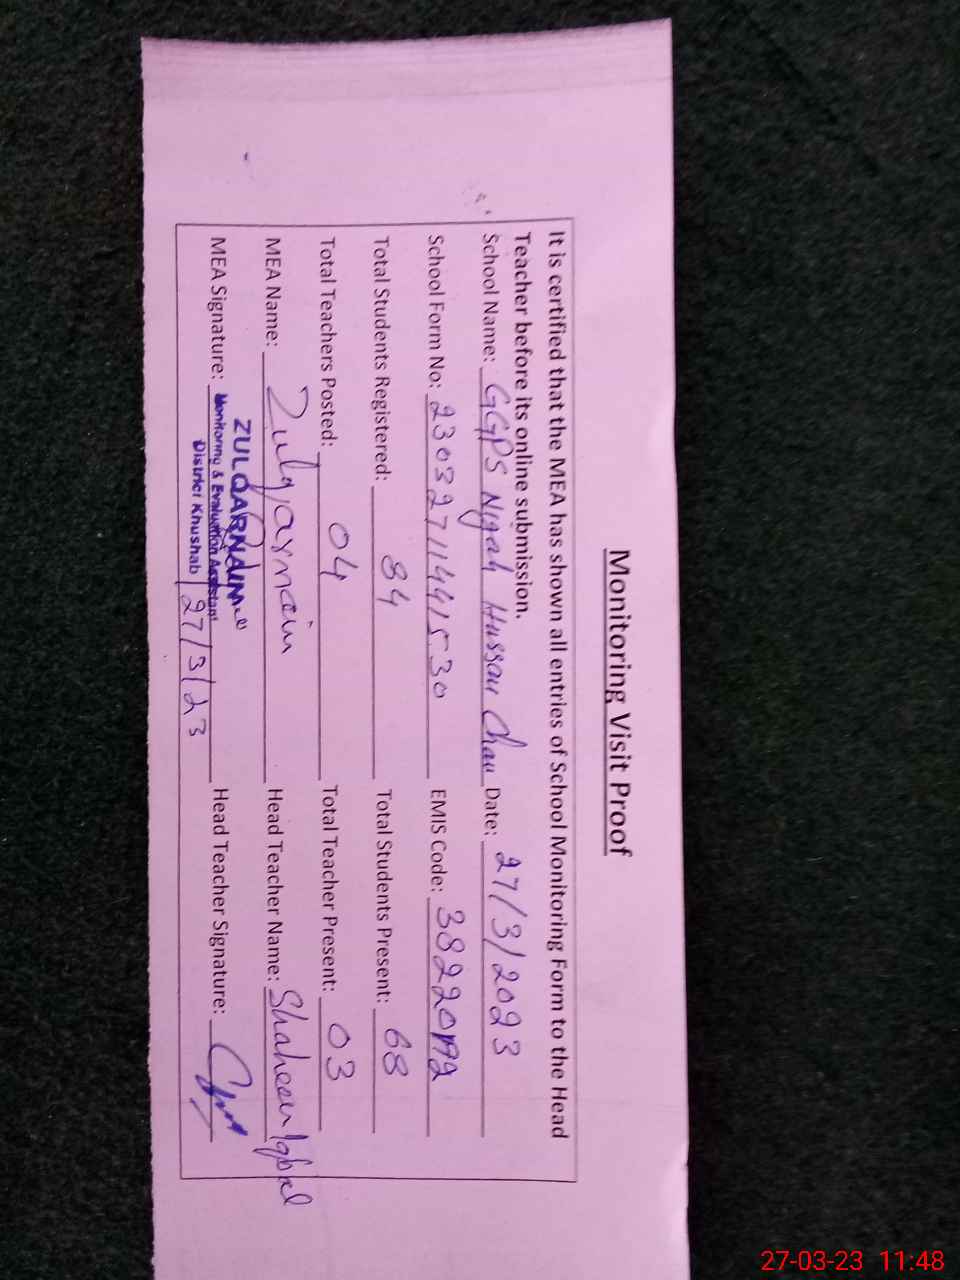 Monitoring Visit Proof
It is certified that the MEA has shown all entries of School Monitoring Form to the Head
Teacher before its online submission.
School Name: GGPS Nigah Hussan Chan Date: 27/3/2023
School Form No: EMIS Code:
Total Students Registered: 84 Total Students Present: 68
Total Teachers Posted: 04 Total Teacher Present: 03
MEA Name: Zulqarnain Head Teacher Name: Shaheen Iqbal
MEA Signature: Head Teacher Signature:
ZULQARNAIN
Monitoring & Evaluation Assistant
District Khushab 27/3/23
27-03-23 11:48